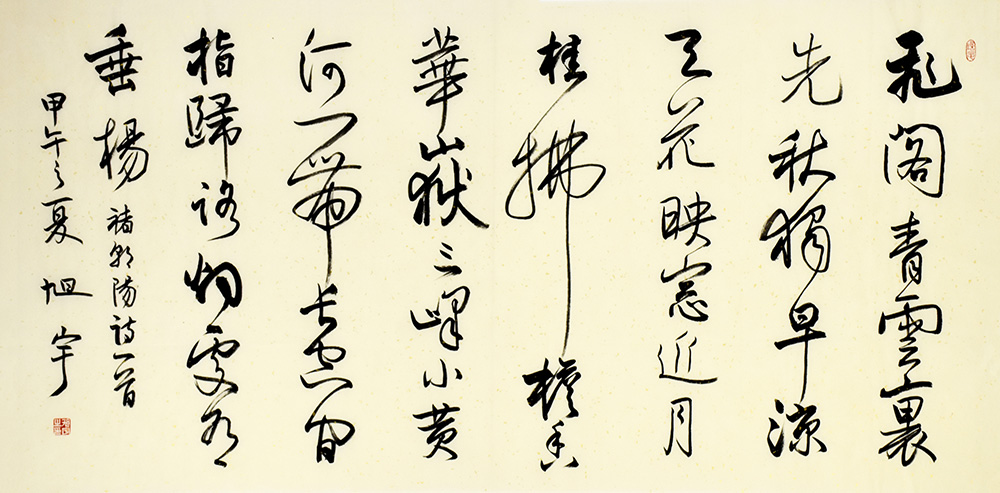 飛閣青雲裏
先秋獨早涼
天花映窓近月
桂拂檐香
華嶽三峰小黄
河一帶長空間
指歸路烟處有
垂楊 褚朝陽詩一首
甲午之夏 旭宇